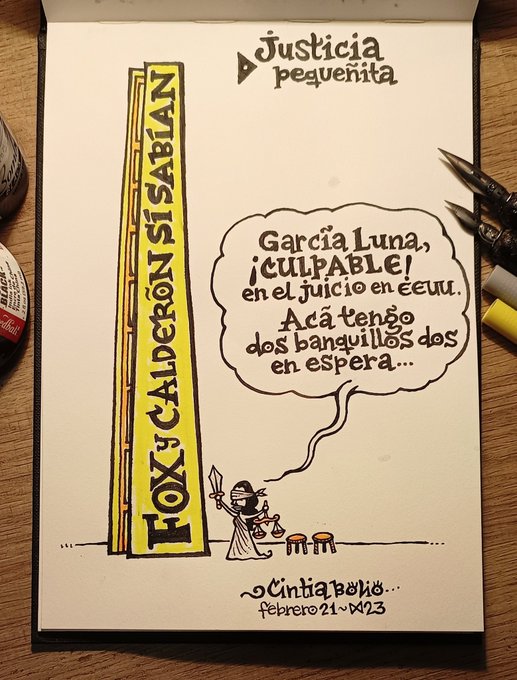 Justicia
pequeñita
FOX y CALDERÓN SÍ SABÍAN
García Luna,
¡CULPABLE!
en el juicio en EEUU.
Acá tengo
dos banquillos dos
en espera...
Cintia Bolio...
febrero 21~23
BLACK